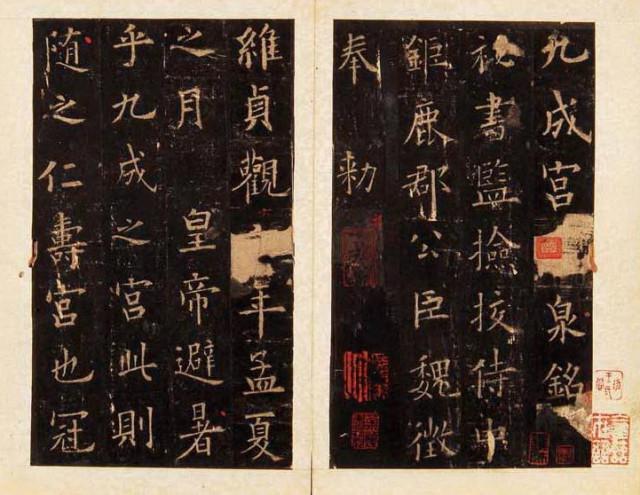 九成宮 泉銘
秘書監撿挍侍中
鉅鹿郡公臣魏徵
奉 勑
維貞觀 年孟夏
之月 皇帝避暑
乎九成之宮此則
随之仁壽宮也冠